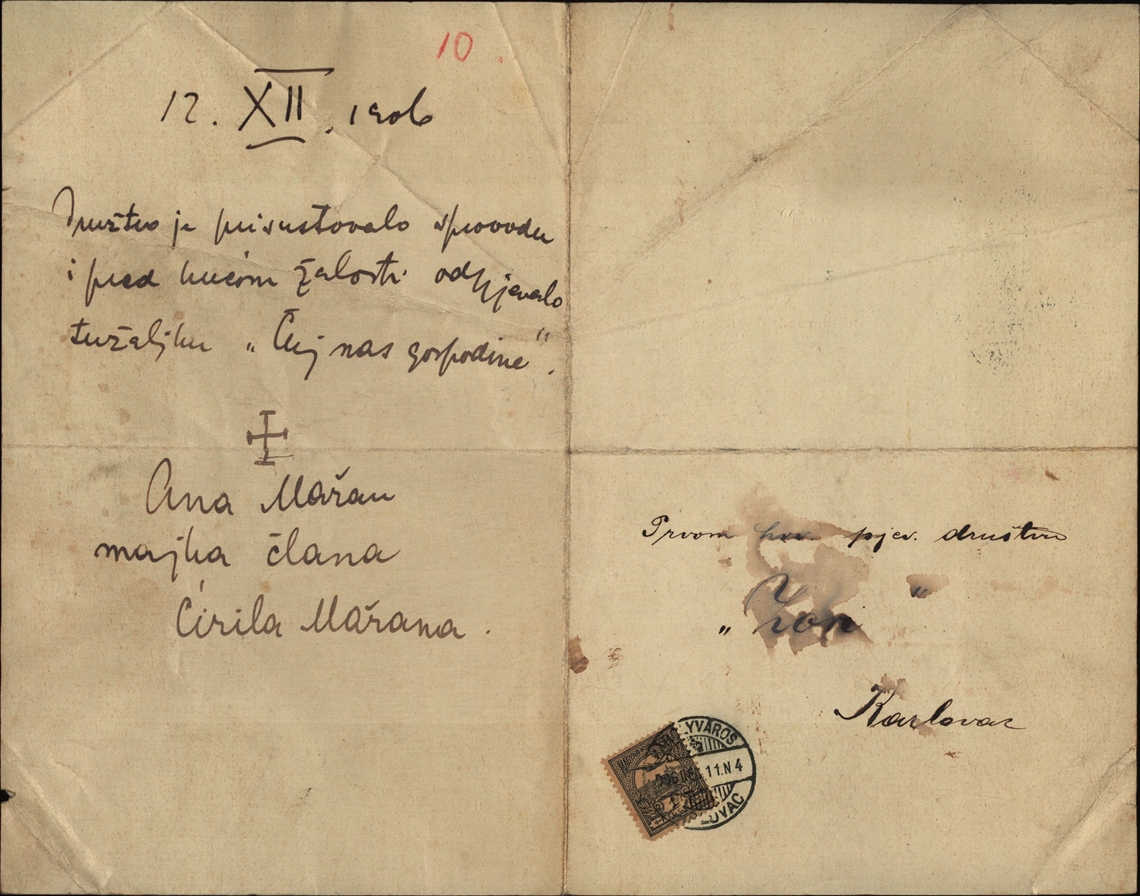 10.
12. XII. 1906
Društvo je prisustovalo sprovodu
i pred kućom žalosti odpjevalo
tužaljku „Čuj nas gospodine“.
Ana Mažan
majka člana
Ćirila Mažana.
Prvom hrv. pjev. društvu
„Zora“
Karlovac
LYVÁROS
906 DEC 11.N4
LOVAC